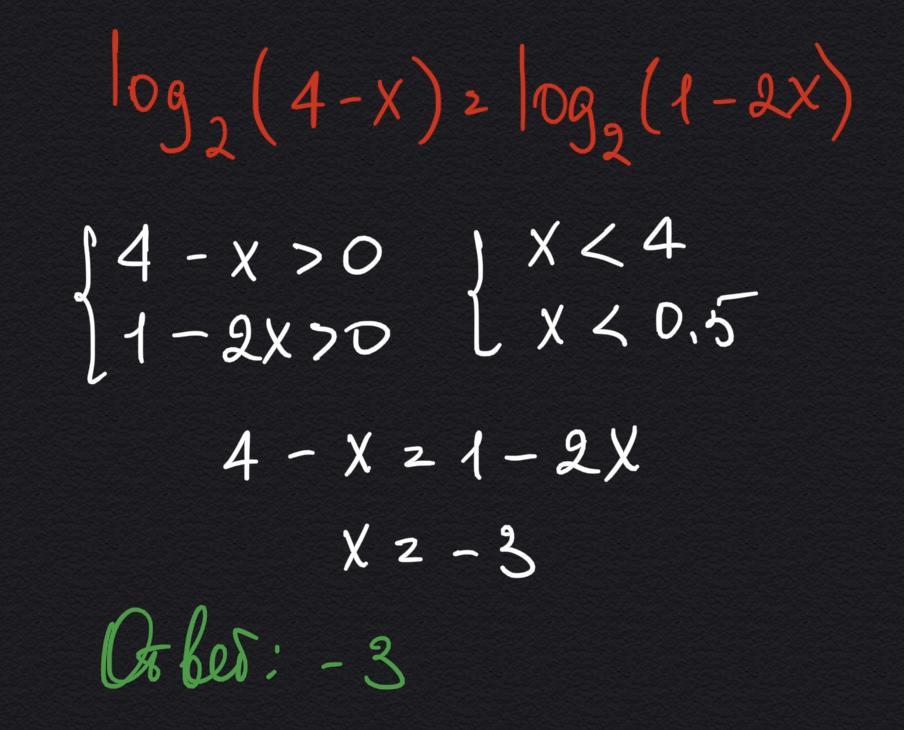 log₂(4-x) = log₂(1-2x)
{ 4 - x > 0 { x < 4
{ 1 - 2x > 0 { x < 0,5
4 - x = 1 - 2x
x = -3
Ответ: -3